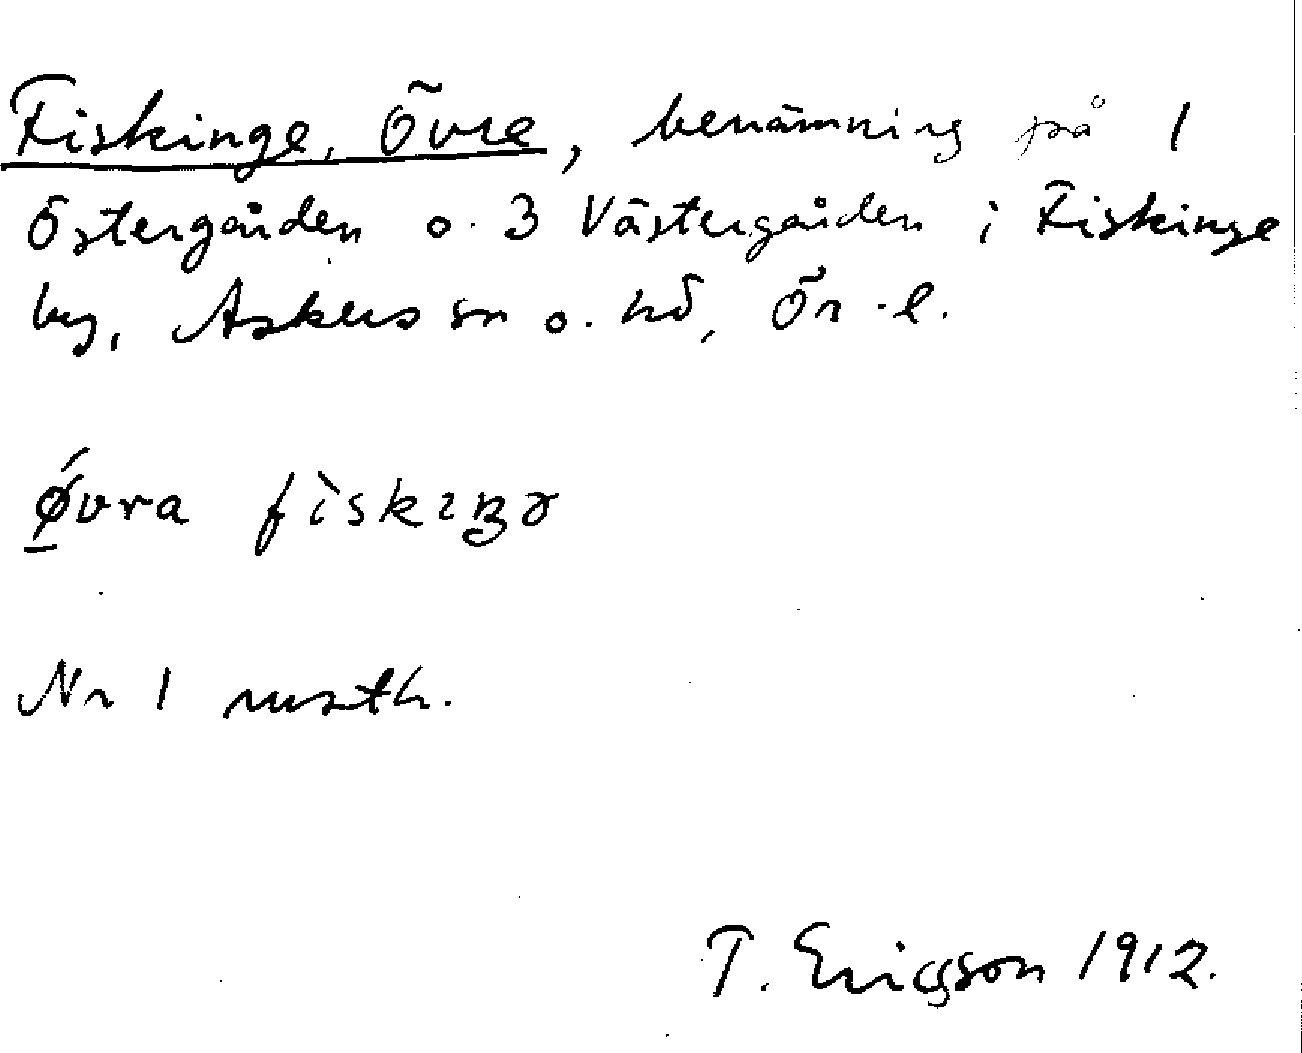 Fiskinge, Övre, benämning på 1
Östergården o. 3 Västergården i Fiskinge
by, Askers sn o. hd, Ör.l.
ǿvra fìskıŋə
Nr 1 rusth.
T. Ericsson 1912.